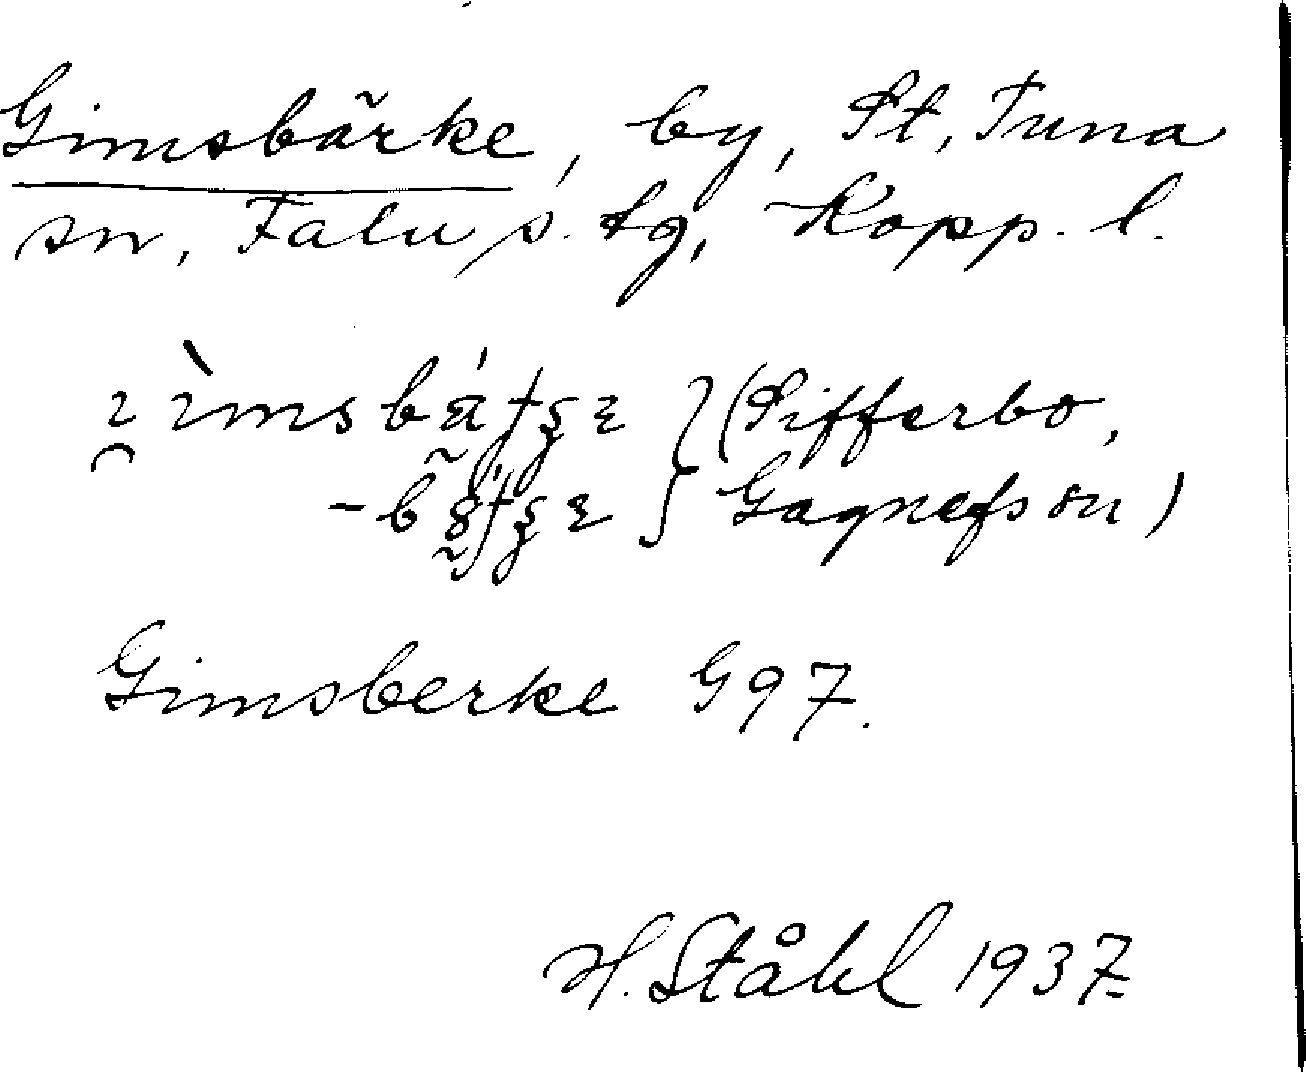 Gimsbärke, by, St. Tuna
sn, Falu s. tg, Kopp. l.
(Sifferbo,
Gagnefsson)
Gimsberke G97.
H. Ståhl 1937